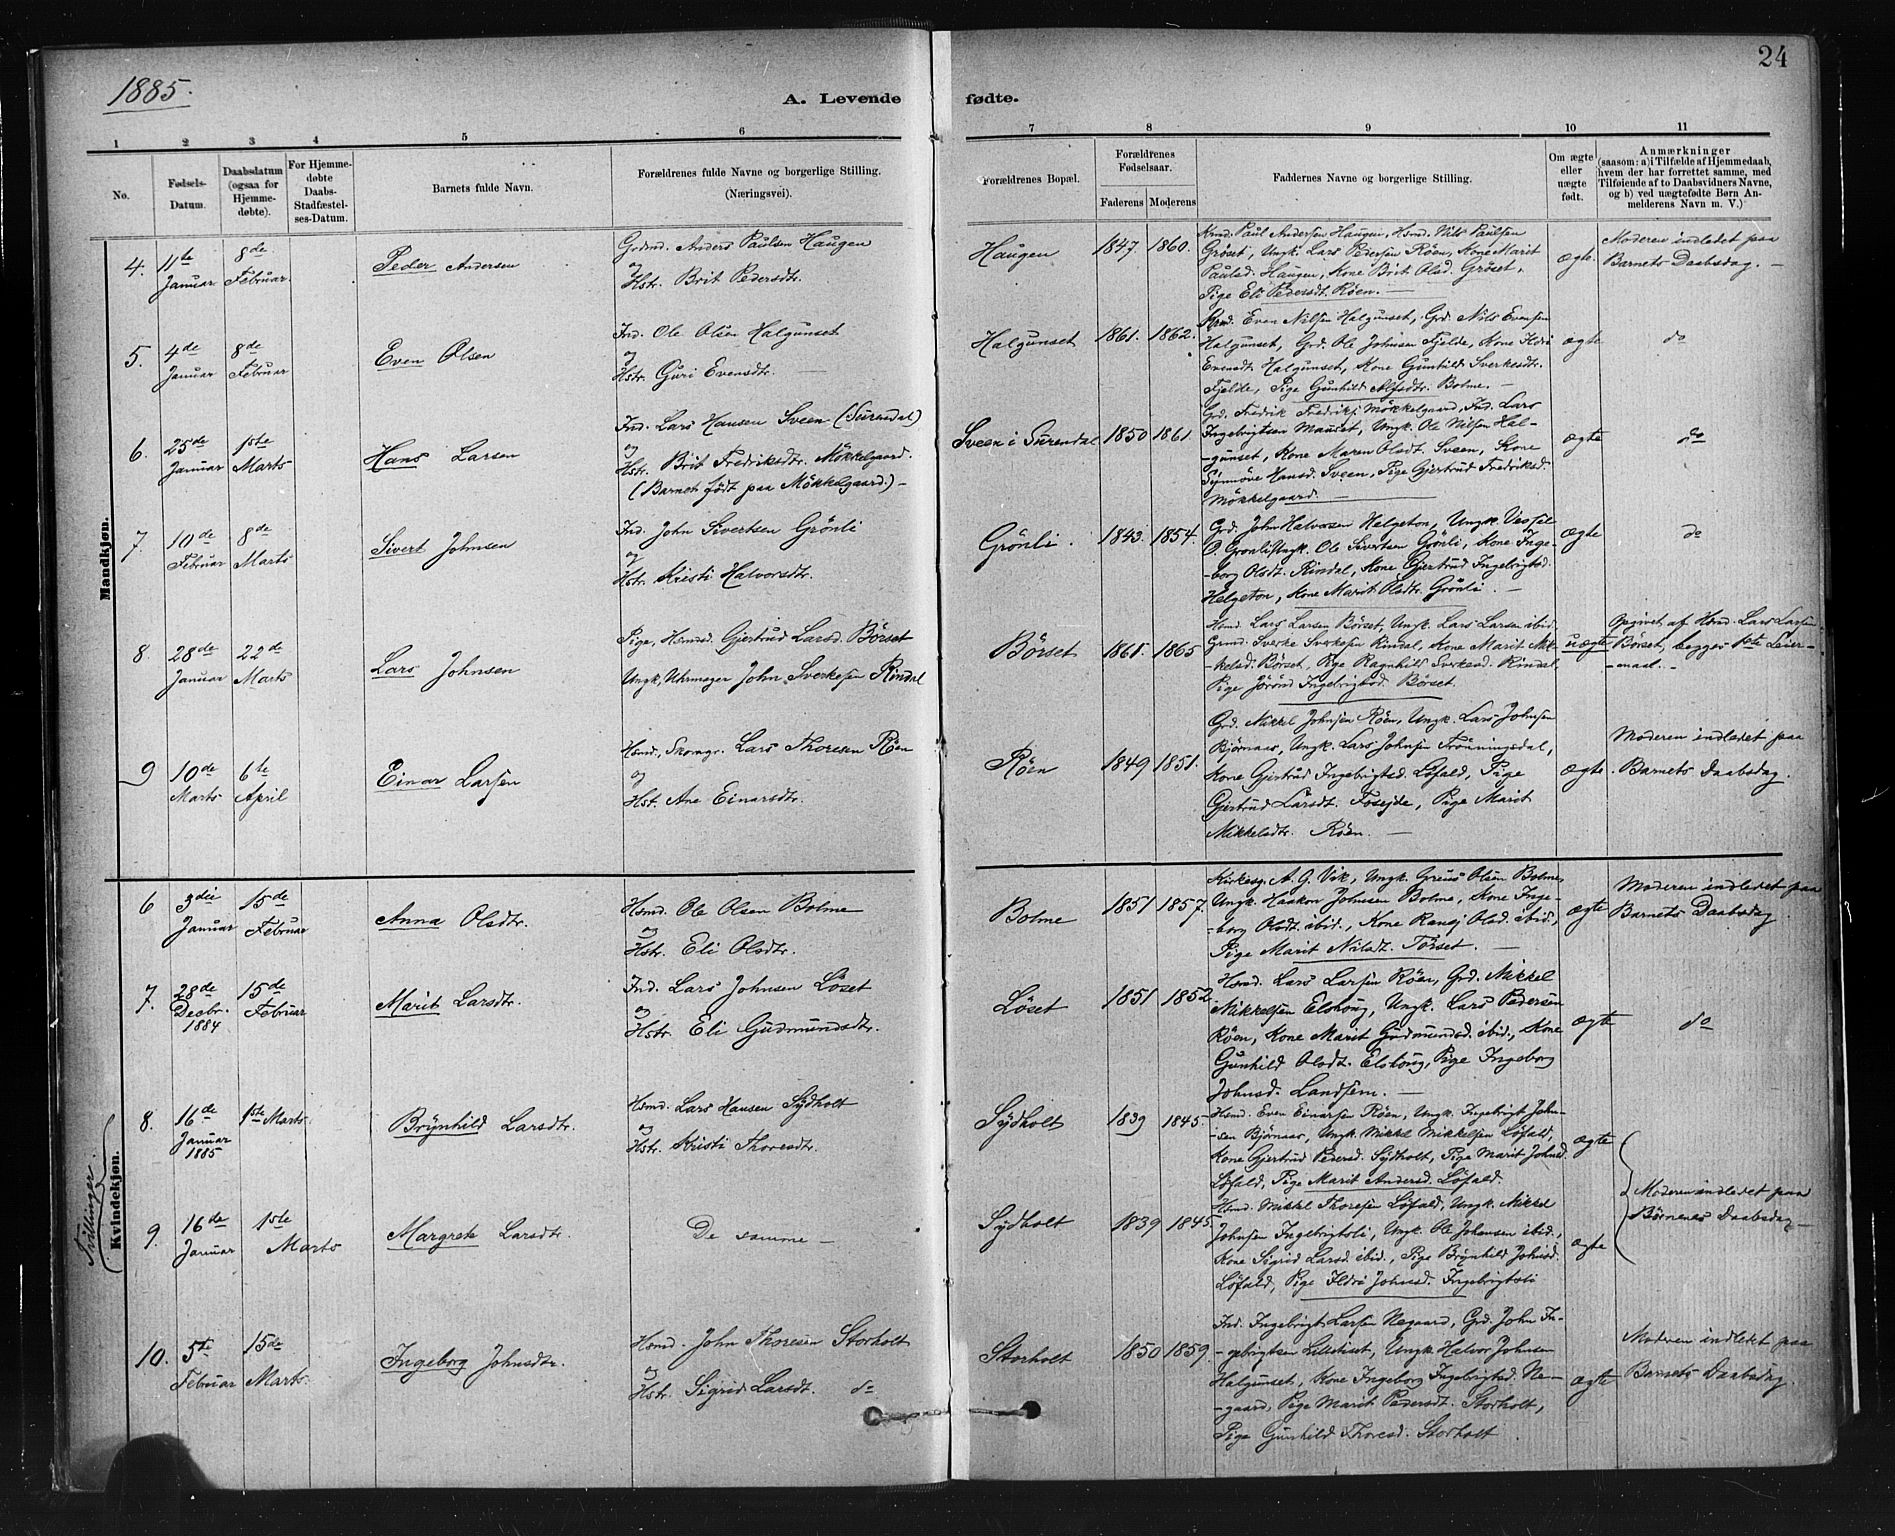 1885.
24
A. Levende fødte.
1 2 3 4 5 6 7 8 9 10 11
No.
Fødsels-Datum.
Daabsdatum (ogsaa for Hjemmedøbte).
For Hjemmedøbte Daabs-Stadfæstelses-Datum.
Barnets fulde Navn.
Forældrenes fulde Navne og borgerlige Stilling. (Næringsvei).
Forældrenes Bopæl.
Forældrenes Fødselsaar.
Faderens Moderens
Faddernes Navne og borgerlige Stilling.
Om ægte eller uægte født.
Anmærkninger
(saasom: a) i Tilfælde af Hjemmedaab,
hvem der har forrettet samme, med
Tilføiende af to Daabsvidners Navne,
og b) ved uægtefødte Børn An-
melderens Navn m. V.)
Mandkjøn.
4. 11te Januar 8de Februar
Peder Andersen
Grdmd. Anders Paulsen Haugen
og
Hstr. Brit Pedersdtr.
Haugen 1847. 1860.
Kmd. Paul Andersen Haugen, Hsmd. Nils Paulsen
Gröset, Ungk. Lars Pedersen Röen, Kone Marit
Paulsd. Haugen, Kone Brit Olsd. Gröset,
Pige Eli Pedersdt. Röen. —
ægte.
Moderen indledet paa
Barnets Daabsdag. —
5. 4de Januar 8de Februar
Even Olsen
Ind. Ole Olsen Halgunset
og
Hstr. Guri Evensdtr. —
Halgunset 1861. 1862.
Kmd. Even Nilsen Halgunset, Grd. Nils Evensen
Halgunset, Grd. Ole Johnsen Fjelde, Kone Ildri
Evensdt. Halgunset, Kone Gunhild Sverkesdtr.
Fjelde, Pige Gunhild Alfsdtr. Bolme. —
ægte
do
6. 25de Januar 1ste Marts
Hans Larsen
Ind. Lars Hansen Sveen (Surendal)
og
Hstr. Brit Fredriksdtr. Mökkelgaard.
(Barnet født paa Mökkelgaard.) —
Sveen i Surendal 1850 1861.
Grd. Fredrik Fredriks. Mökkelgaard, Ind. Lars
Ingebrigtsen Mauset, Ungk. Ole Nilsen Hal-
-gunset, Kone Maren Olsdt. Sveen, Kone
Synnöve Hansd. Sveen, Pige Gjertrud Fredriksd.
Mökkelgaard. —
ægte
do
7. 10de Februar 8de Marts
Sivert Johnsen
Ind. John Sivertsen Grönli
og
Hstr. Kristi Halvorsdtr.
Grönli. 1843. 1854.
Grd. John Halvorsen Helgeton, Ungk.
O. Grönli, Ungk. Ole Sivertsen Grönli, Kone Inge-
-borg Olsdt. Rindal, Kone Gjertrud Ingebrigtsd.
Helgeton, Kone Marit Olsdtr. Grönli. —
ægte
do
8. 28de Januar 22de Marts
Lars Johnsen
Pige, Hsmds. Gjertrud Larsd. Börset
Ungk, Uhrmager John Sverkesen Rindal
Börset 1861. 1865
Hsmd. Lars Larsen Börset, Ungk. Lars Larsen ibid.
Grmd. Sverke Sverkesen Rindal, Kone Marit Mik-
-kelsd. Börset, Pige Ragnhild Sverkesd. Rindal
Pige Jörönd Ingebrigtsd. Börset.
uægte
Opgivet af Hsmd. Lars Larsen
Börset, begges 1ste Leier-
-maal. —
9 10de Marts 6te April
Einar Larsen
Hsmd., Skomgr. Lars Thoresen Röen
og
Hst. Ane Einarsdtr.
Röen 1849 1851.
Grd. Mikkel Johnsen Röen, Ungk. Lars Johnsen
Bjørnaas, Ungk. Lars Johnsen Trönningsdal,
Kone Gjertrud Ingebrigtsd. Løfald, Pige
Gjertrud Larsdt. Fosejde, Pige Marit
Mikkelsdtr. Röen. —
ægte.
Moderen indledet paa
Barnets Daabsdag.
Kvindekjøn.
6 3die Januar 15de Februar
Anna Olsdtr.
Hsmd. Ole Olsen Bolme
og
Hstr. Eli Olsdtr.
Bolme 1851 1857.
Kirkesg. A. G. Vik, Ungk. Greus Olsen Bolme,
Ungk. Haakon Johnsen Bolme, Kone Inge-
-borg Olsdt. ibid., Kone Ranej Olsd. ibid.,
Pige Marit Nilsdt. Törset. —
ægte
Moderen indledet paa
Barnets Daabsdag
7. 28de Decbr. 1884 15de Februar
Marit Larsdtr.
Ind. Lars Johnsen Löset
og
Hstr. Eli Gudmundsdtr.
Löset 1851 1852.
Hsmd. Lars Larsen Röen, Grd. Mikkel
Mikkelsen Elshöug, Ungk. Lars Pedersen
Röen, Kone Marit Gudmundsd. ibid., Kone
Gunhild Olsdt. Elshöug, Pige Ingeborg
Johnsd. Landsem. —
ægte
do
Tvillinger.
8. 16de Januar 1885 1ste Marts
Brÿnhild Larsdtr.
Hsmd. Lars Hansen Sÿdholt
og
Hstr. Kristi Thoresdtr.
Sÿdholt 1839 1845.
Hsmd. Even Einarsen Röen, Ungk. Ingebrigt John-
-sen Bjørnaas, Ungk. Mikkel Mikkelsen Løfald,
Kone Gjertrud Pedersd. Sÿdholt, Pige Marit Johnsd.
Løfald, Pige Marit Andersd. Løfald.
ægte
9. 16de Januar 1ste Marts
Margrete Larsdtr.
De samme —
Sÿdholt 1839 1845.
Hsmd. Mikkel Thoresen Løfald, Ungk. Mikkel
Johnsen Ingebrigtsli, Ungk. Ole Johansen ibid.,
Kone Sigrid Larsd. ibid., Pige Brÿnhild Johnsd.
Løfald, Pige Ildri Johnsd. Ingebrigtsli
ægte
Moderen indledet paa
Børnenes Daabsdag —
10. 5te Februar 15de Marts
Ingeborg Johnsdtr.
Hsmd. John Thoresen Storholt
og
Hstr. Sigrid Larsdt. do
Storholt 1850 1859.
Ind. Ingebrigt Larsen Negaard, Grd. John In-
-gebrigtsen, Ungk. Halvor Johnsen
Halgunset, Kone Ingeborg Ingebrigtsd. Ne-
-gaard, Pige Marit Pedersdt. Storholt,
Pige Gunhild Thoresd. Storholt.
ægte
Moderen indledet paa
Barnets Daabsdag.